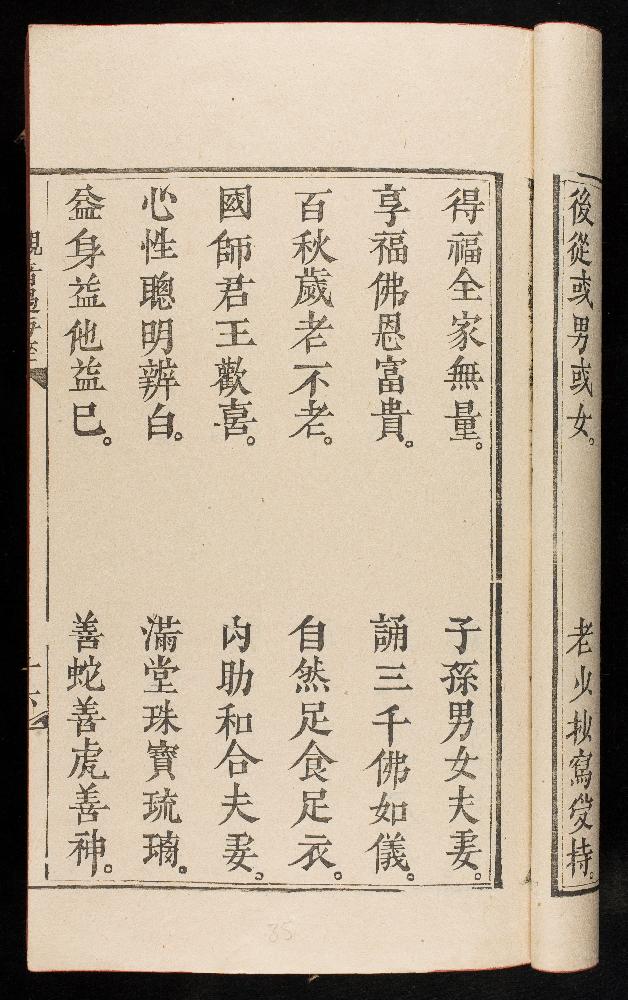 後從或男或女。 老少抄寫受持。
得福全家無量。 子孫男女夫妻。
享福佛恩富貴。 誦三千佛如儀。
百秋歲老不老。 自然足食足衣。
國師君王歡喜。 內助和合夫妻。
心性聰明辨白。 滿堂珠寶琉璃。
益身益他益己。 善蛇善虎善神。
35